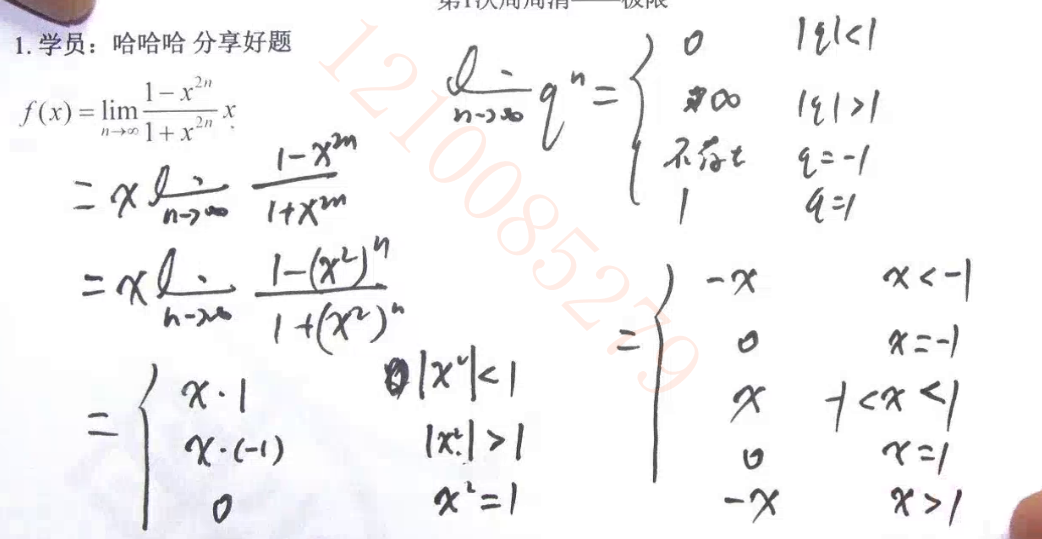 第1次周周清——极限
1. 学员：哈哈哈 分享好题
f(x) = lim_{n→∞} \frac{1-x^{2n}}{1+x^{2n}} x
= x lim_{n→∞} \frac{1-x^{2n}}{1+x^{2n}}
= x lim_{n→∞} \frac{1-(x²)^n}{1+(x²)^n}
= { x·1 |x²|<1
x·(-1) |x²|>1
0 x²=1
lim_{n→∞} q^n = { 0 |q|<1
∞ |q|>1
不存在 q=-1
1 q=1
= { -x x<-1
0 x=-1
x -1<x<1
0 x=1
-x x>1
1210085279